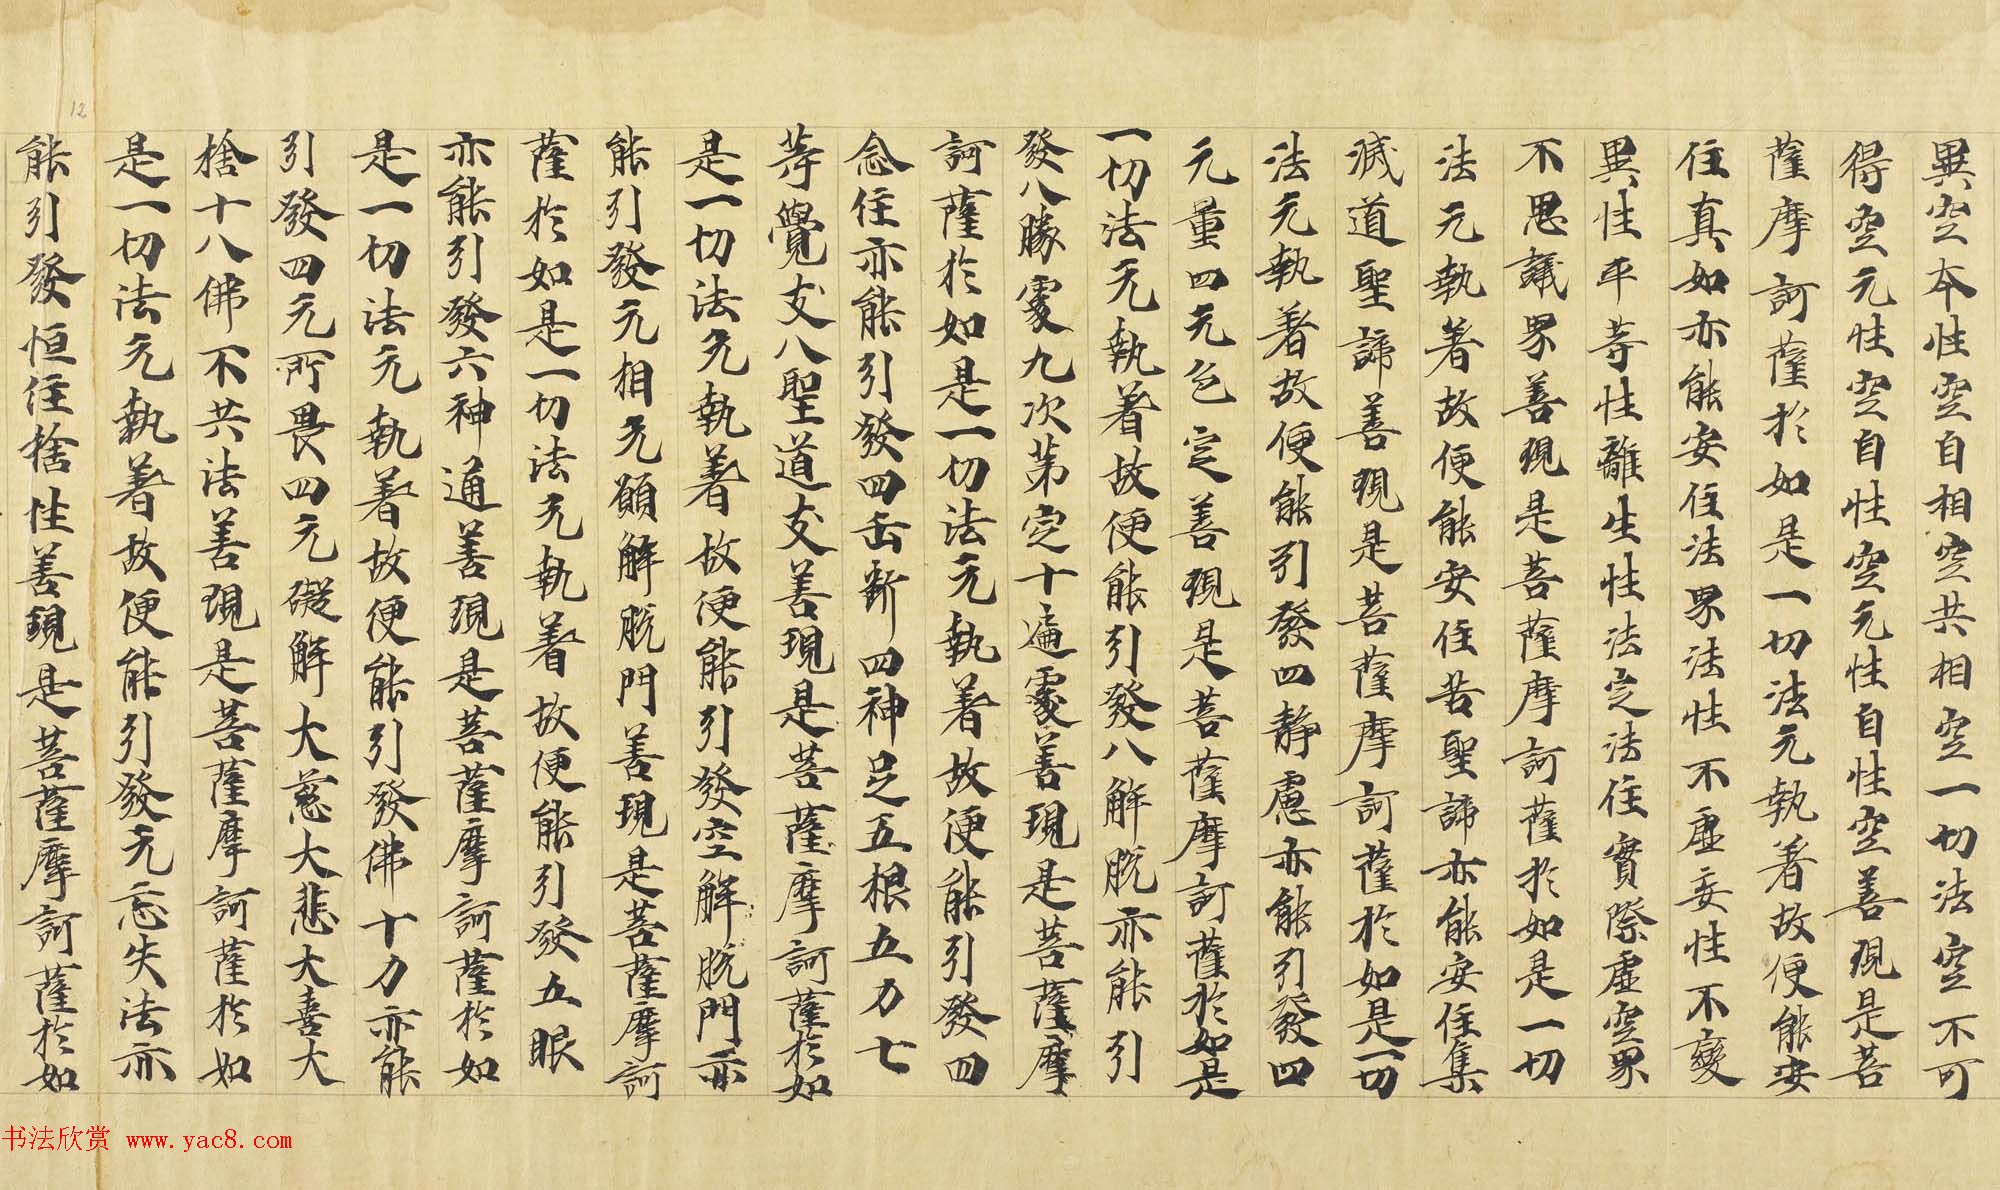 異空本性空自相空共相空一切法空不可
得空无性空自性空无性自性空善現是菩
薩摩訶薩於如是一切法无執著故便能安
住真如亦能安住法界法性不虛妄性不變
異性平等性離生性法定法住實際虛空界
不思議界善現是菩薩摩訶薩於如是一切
法无執著故便能安住苦聖諦亦能安住集
滅道聖諦善現是菩薩摩訶薩於如是一切
法无執著故便能引發四靜慮亦能引發四
无量四无色定善現是菩薩摩訶薩於如是
一切法无執著故便能引發八解脫亦能引
發八勝處九次第定十遍處善現是菩薩摩
訶薩於如是一切法无執著故便能引發四
念住亦能引發四正斷四神足五根五力七
等覺支八聖道支善現是菩薩摩訶薩於如
是一切法无執著故便能引發空解脫門亦
能引發无相无願解脫門善現是菩薩摩訶
薩於如是一切法无執著故便能引發五眼
亦能引發六神通善現是菩薩摩訶薩於如
是一切法无執著故便能引發佛十力亦能
引發四无所畏四无礙解大慈大悲大喜大
捨十八佛不共法善現是菩薩摩訶薩於如
是一切法无執著故便能引發无忘失法亦
能引發恒住捨性善現是菩薩摩訶薩於如
12
书法欣赏 www.yac8.com